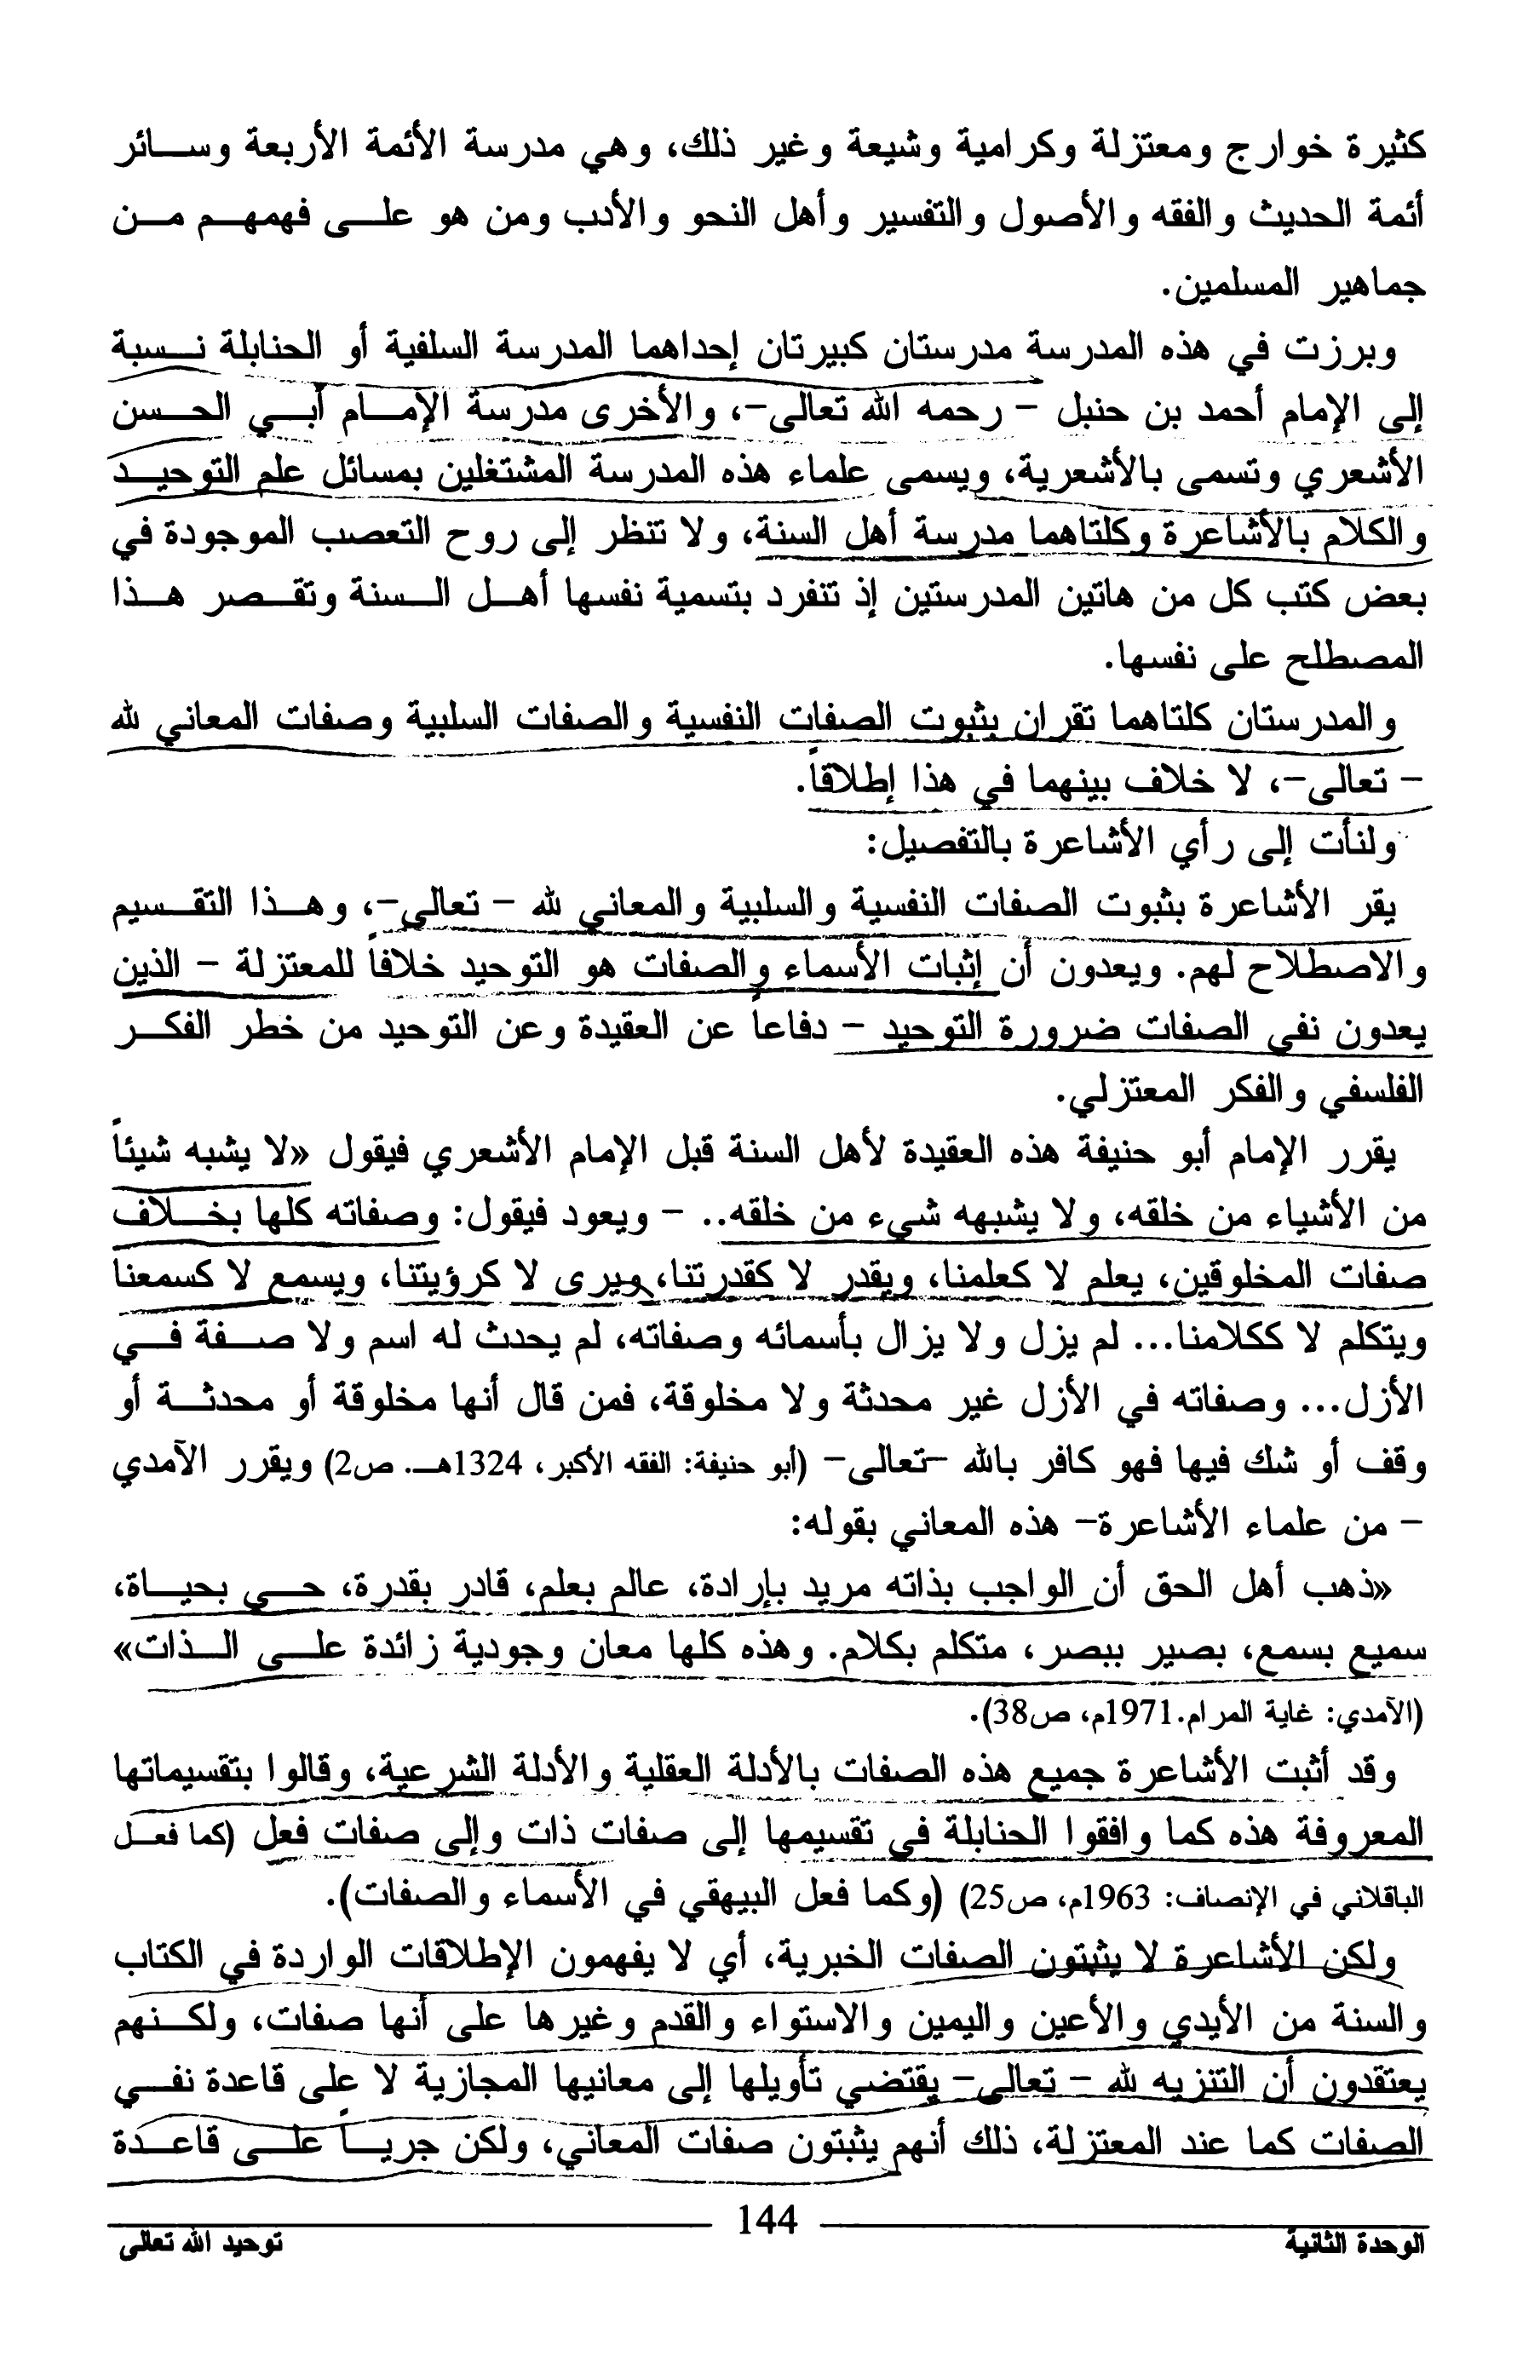 كثيرة خوارج ومعتزلة وكرامية وشيعة وغير ذلك، وهي مدرسة الأئمة الأربعة وسائر
أئمة الحديث والفقه والأصول والتفسير وأهل النحو والأدب ومن هو على فهمهم من
جماهير المسلمين.
وبرزت في هذه المدرسة مدرستان كبيرتان إحداهما المدرسة السلفية أو الحنابلة نسبة
إلى الإمام أحمد بن حنبل – رحمه الله تعالى–، والأخرى مدرسة الإمام أبي الحسن
الأشعري وتسمى بالأشعرية، ويسمى علماء هذه المدرسة المشتغلين بمسائل علم التوحيد
والكلام بالأشاعرة وكلتاهما مدرسة أهل السنة، ولا تنظر إلى روح التعصب الموجودة في
بعض كتب كل من هاتين المدرستين إذ تنفرد بتسمية نفسها أهل السنة وتقصر هذا
المصطلح على نفسها.
والمدرستان كلتاهما تقران بثبوت الصفات النفسية والصفات السلبية وصفات المعاني لله
– تعالى–، لا خلاف بينهما في هذا إطلاقاً.
ولنأت إلى رأي الأشاعرة بالتفصيل:
يقر الأشاعرة بثبوت الصفات النفسية والسلبية والمعاني لله – تعالى–، وهذا التقسيم
والاصطلاح لهم. ويعدون أن إثبات الأسماء والصفات هو التوحيد خلافاً للمعتزلة – الذين
يعدون نفي الصفات ضرورة التوحيد – دفاعاً عن العقيدة وعن التوحيد من خطر الفكر
الفلسفي والفكر المعتزلي.
يقرر الإمام أبو حنيفة هذه العقيدة لأهل السنة قبل الإمام الأشعري فيقول «لا يشبه شيئاً
من الأشياء من خلقه، ولا يشبهه شيء من خلقه.. – ويعود فيقول: وصفاته كلها بخلاف
صفات المخلوقين، يعلم لا كعلمنا، ويقدر لا كقدرتنا، ويرى لا كرؤيتنا، ويسمع لا كسمعنا
ويتكلم لا ككلامنا... لم يزل ولا يزال بأسمائه وصفاته، لم يحدث له اسم ولا صفة في
الأزل... وصفاته في الأزل غير محدثة ولا مخلوقة، فمن قال أنها مخلوقة أو محدثة أو
وقف أو شك فيها فهو كافر بالله –تعالى– (أبو حنيفة: الفقه الأكبر، 1324هـ. ص2) ويقرر الآمدي
– من علماء الأشاعرة– هذه المعاني بقوله:
«ذهب أهل الحق أن الواجب بذاته مريد بإرادة، عالم بعلم، قادر بقدرة، حي بحياة،
سميع بسمع، بصير ببصر، متكلم بكلام. وهذه كلها معان وجودية زائدة على الذات»
(الآمدي: غاية المرام.1971م، ص38).
وقد أثبت الأشاعرة جميع هذه الصفات بالأدلة العقلية والأدلة الشرعية، وقالوا بتقسيماتها
المعروفة هذه كما وافقوا الحنابلة في تقسيمها إلى صفات ذات وإلى صفات فعل (كما فعل
الباقلاني في الإنصاف: 1963م، ص25) (وكما فعل البيهقي في الأسماء والصفات).
ولكن الأشاعرة لا يثبتون الصفات الخبرية، أي لا يفهمون الإطلاقات الواردة في الكتاب
والسنة من الأيدي والأعين واليمين والاستواء والقدم وغيرها على أنها صفات، ولكنهم
يعتقدون أن التنزيه لله – تعالى– يقتضي تأويلها إلى معانيها المجازية لا على قاعدة نفي
الصفات كما عند المعتزلة، ذلك أنهم يثبتون صفات المعاني، ولكن جرياً على قاعدة
144
الوحدة الثانية توحيد الله تعالى